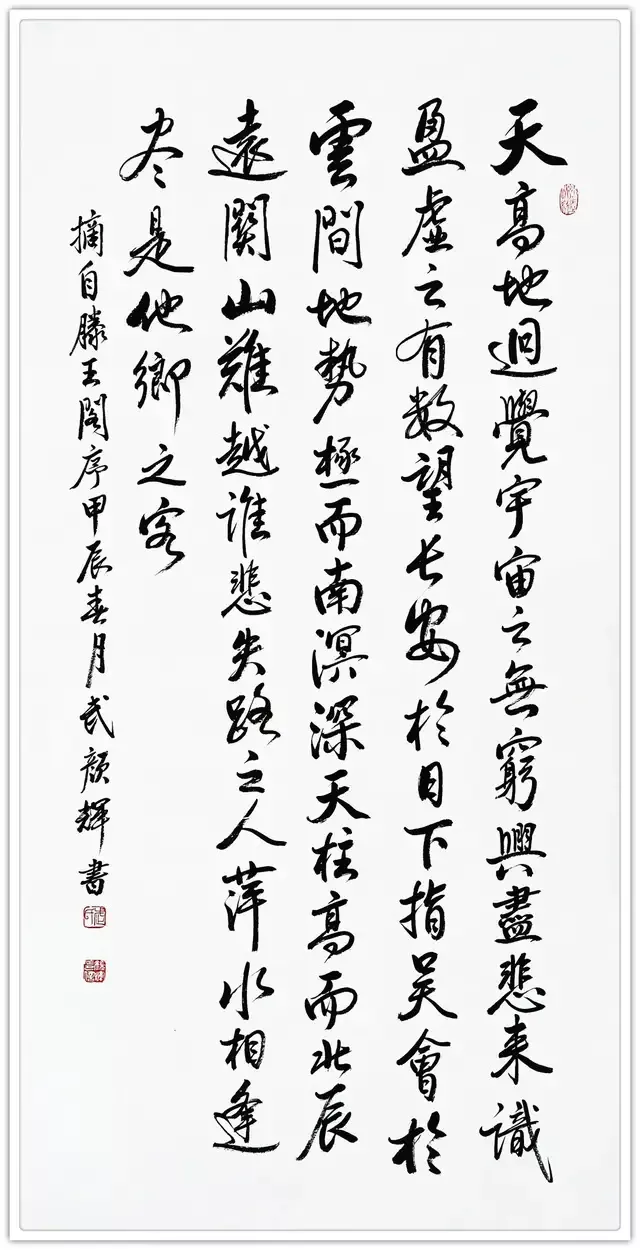 天高地迥覺宇宙之無窮興盡悲来識
盈虛之有数望长安於日下指吴會於
雲間地势極而南溟深天柱高而北辰
遠關山難越誰悲失路之人萍水相逢
尽是他鄉之客
摘自滕王閣序甲辰春月武顏輝書